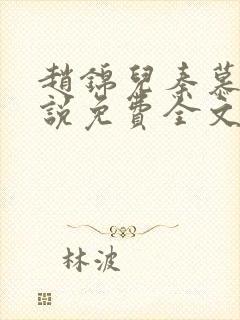 趙錦兒秦慕
說免費全文
林波